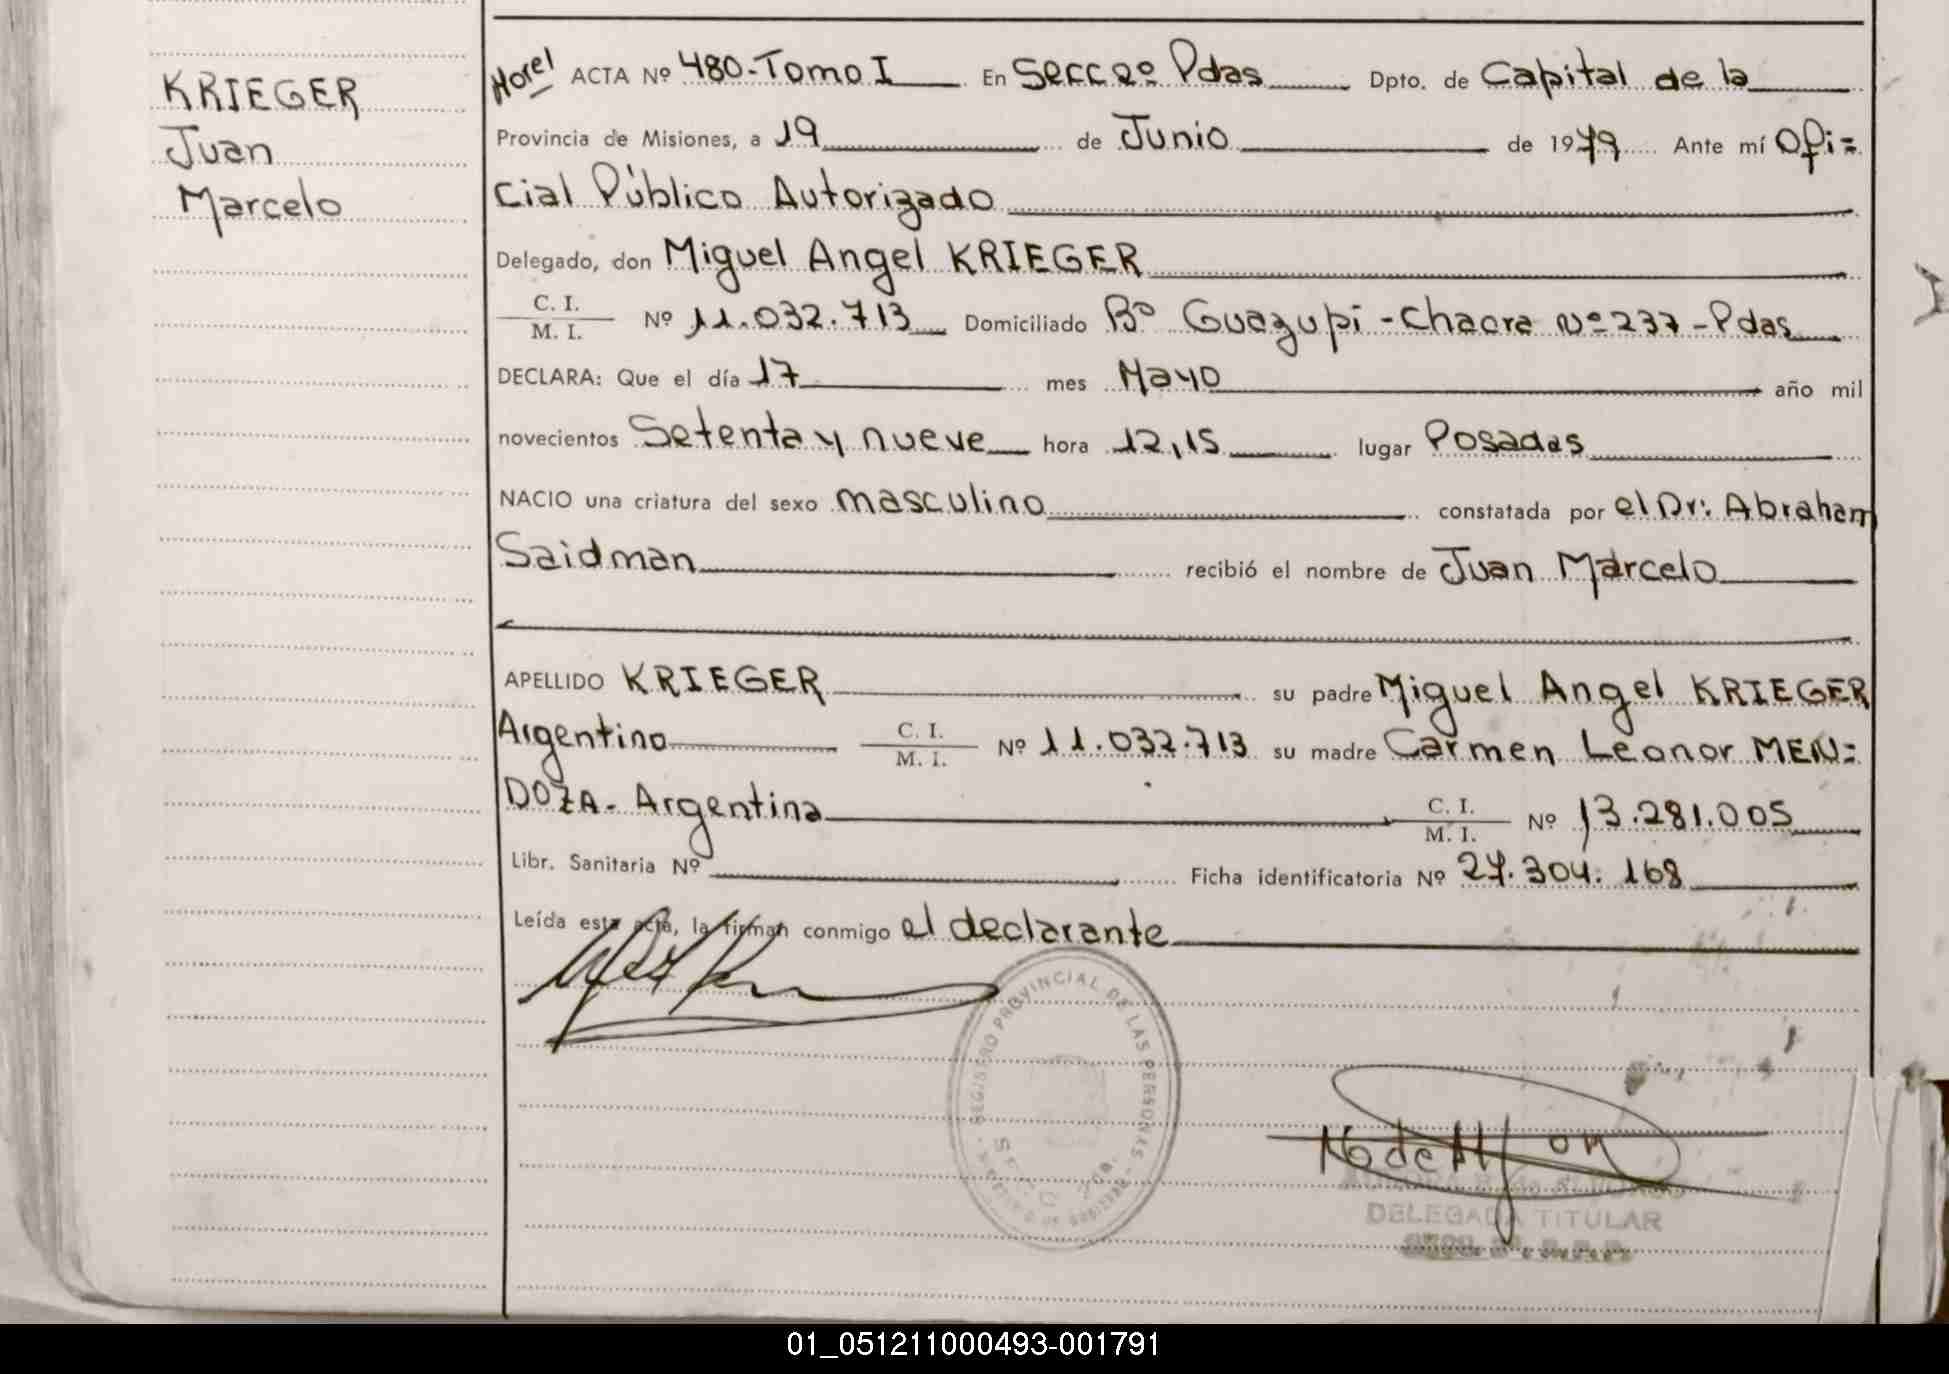 KRIEGER
Juan
Marcelo
ACTA Nº 480-Tomo I En Secc 2º Pdas Dpto. de Capital de la
Provincia de Misiones, a 19 de Junio de 1979 Ante mí Ofi=
cial Público Autorizado
Delegado, don Miguel Angel KRIEGER
C. I.
M. I. Nº 11.032.713 Domiciliado Bº Guazupi - Chacra Nº 237 - Pdas
DECLARA: Que el día 17 mes Mayo año mil
novecientos Setenta y nueve hora 12,15 lugar Posadas
NACIO una criatura del sexo masculino constatada por el Dr: Abraham
Saidman recibió el nombre de Juan Marcelo
APELLIDO KRIEGER su padre Miguel Angel KRIEGER
Argentino C. I. M. I. Nº 11.032.713 su madre Carmen Leonor MEN=
DOZA - Argentina C. I. M. I. Nº 13.281.005
Libr. Sanitaria Nº Ficha identificatoria Nº 27.304.168
Leída esta acta, la firman conmigo el declarante
REGISTRO PROVINCIAL DE LAS PERSONAS
DELEGADA TITULAR
01_051211000493-001791